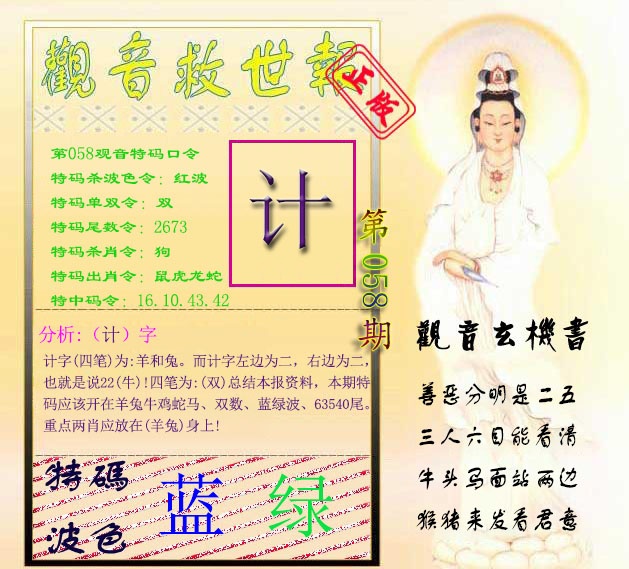 觀音救世報
正版
第058观音特码口令
特码杀波色令: 红波
特码单双令: 双
特码尾数令: 2673
特码杀肖令: 狗
特码出肖令: 鼠虎龙蛇
特中码令: 16.10.43.42
计
第058期
分析:（计）字
计字(四笔)为:羊和兔。而计字左边为二，右边为二，
也就是说22(牛)!四笔为:(双)总结本报资料，本期特
码应该开在羊兔牛鸡蛇马、双数、蓝绿波、63540尾。
重点两肖应放在(羊兔)身上!
特碼
波色
蓝 绿
觀音玄機書
善恶分明是二五
三人六目能看清
牛头马面站两边
猴猪来发看君意